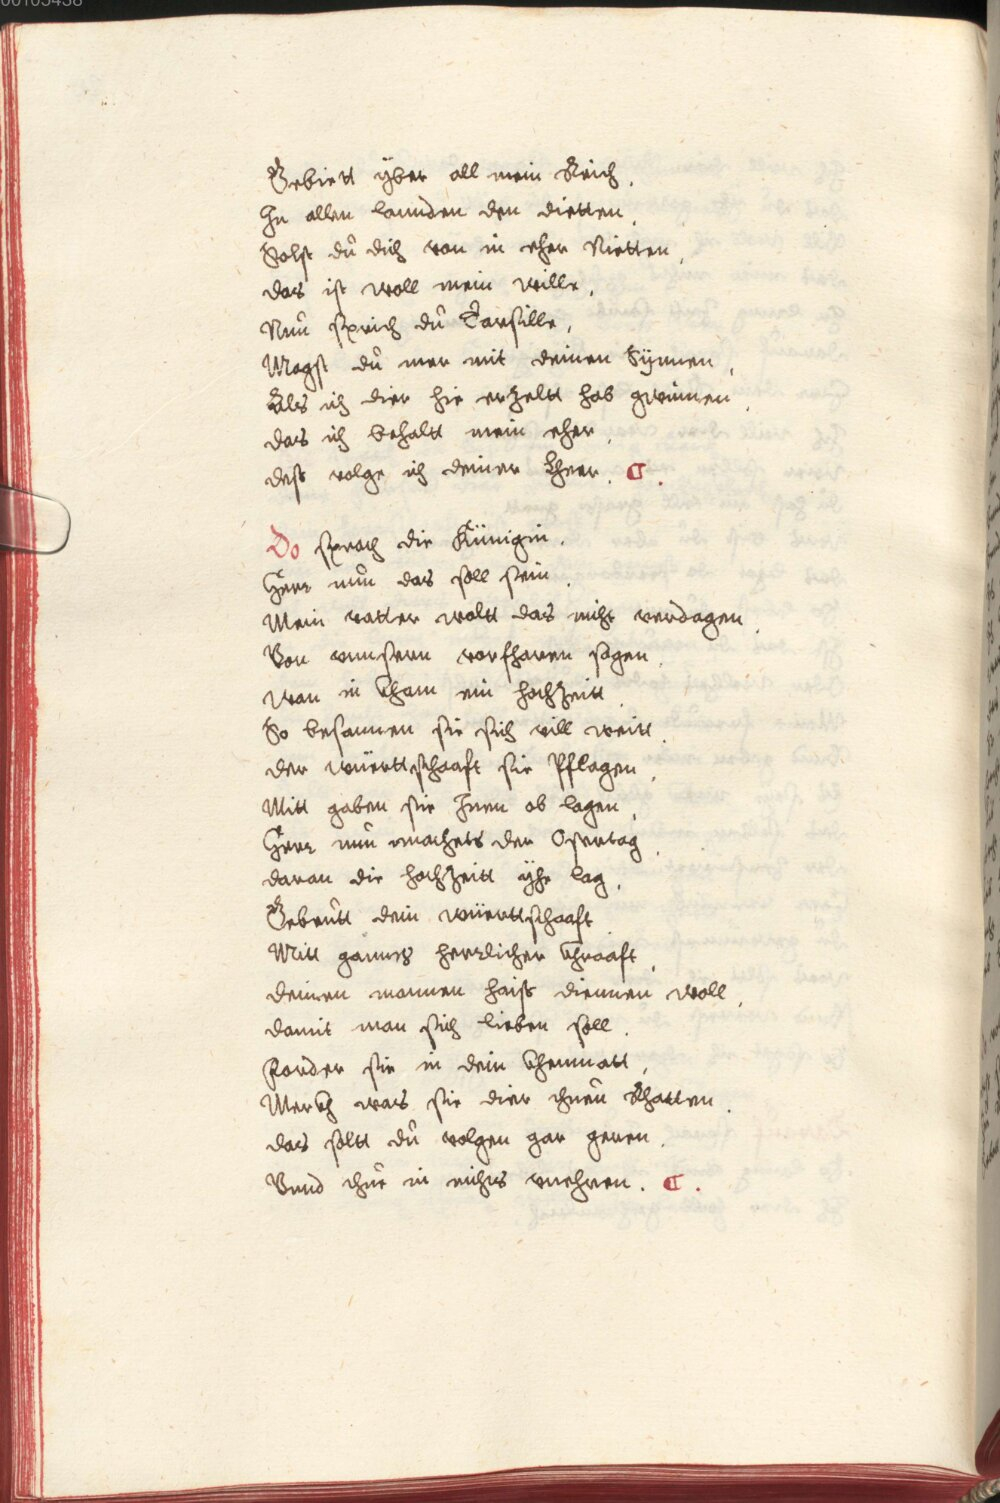 00105438
Gebiett yber all mein Reich,
In allen lannden den dietten,
Solst dŭ dich von in eher Nietten,
das ist woll mein wille,
Nŭn sprich dŭ Tarsille,
Magst dŭ mer mit deinen Synnen,
Als ich dier hie erzeltt hab gwinnen,
das ich behaltt mein eher,
dess volge ich deiner Lheer. C.
Do sprach die Künigin,
Herr nŭn das soll sein,
Mein vatter woltt das nicht verdagen,
Von vnnsern vorfharen sagen,
wan in kham ein hochzeitt,
So besannen sie sich vill weitt,
der württschaafft sie Pflagen,
Mitt gaben sie Inen ob lagen,
Herr nŭn machets der Ostertag,
daran die hochzeitt yhe lag,
Gebeutt dein württschaafft,
Mitt gannz herrlicher khraafft,
deinen mannen haiss diennen woll,
damit man sich lieben soll,
Forder sie in dein khemnatt,
Merckh was sie dier thuen Rhatten,
das soltt dŭ volgen gar geren,
Vnnd thŭe in nichts vnehren. C.